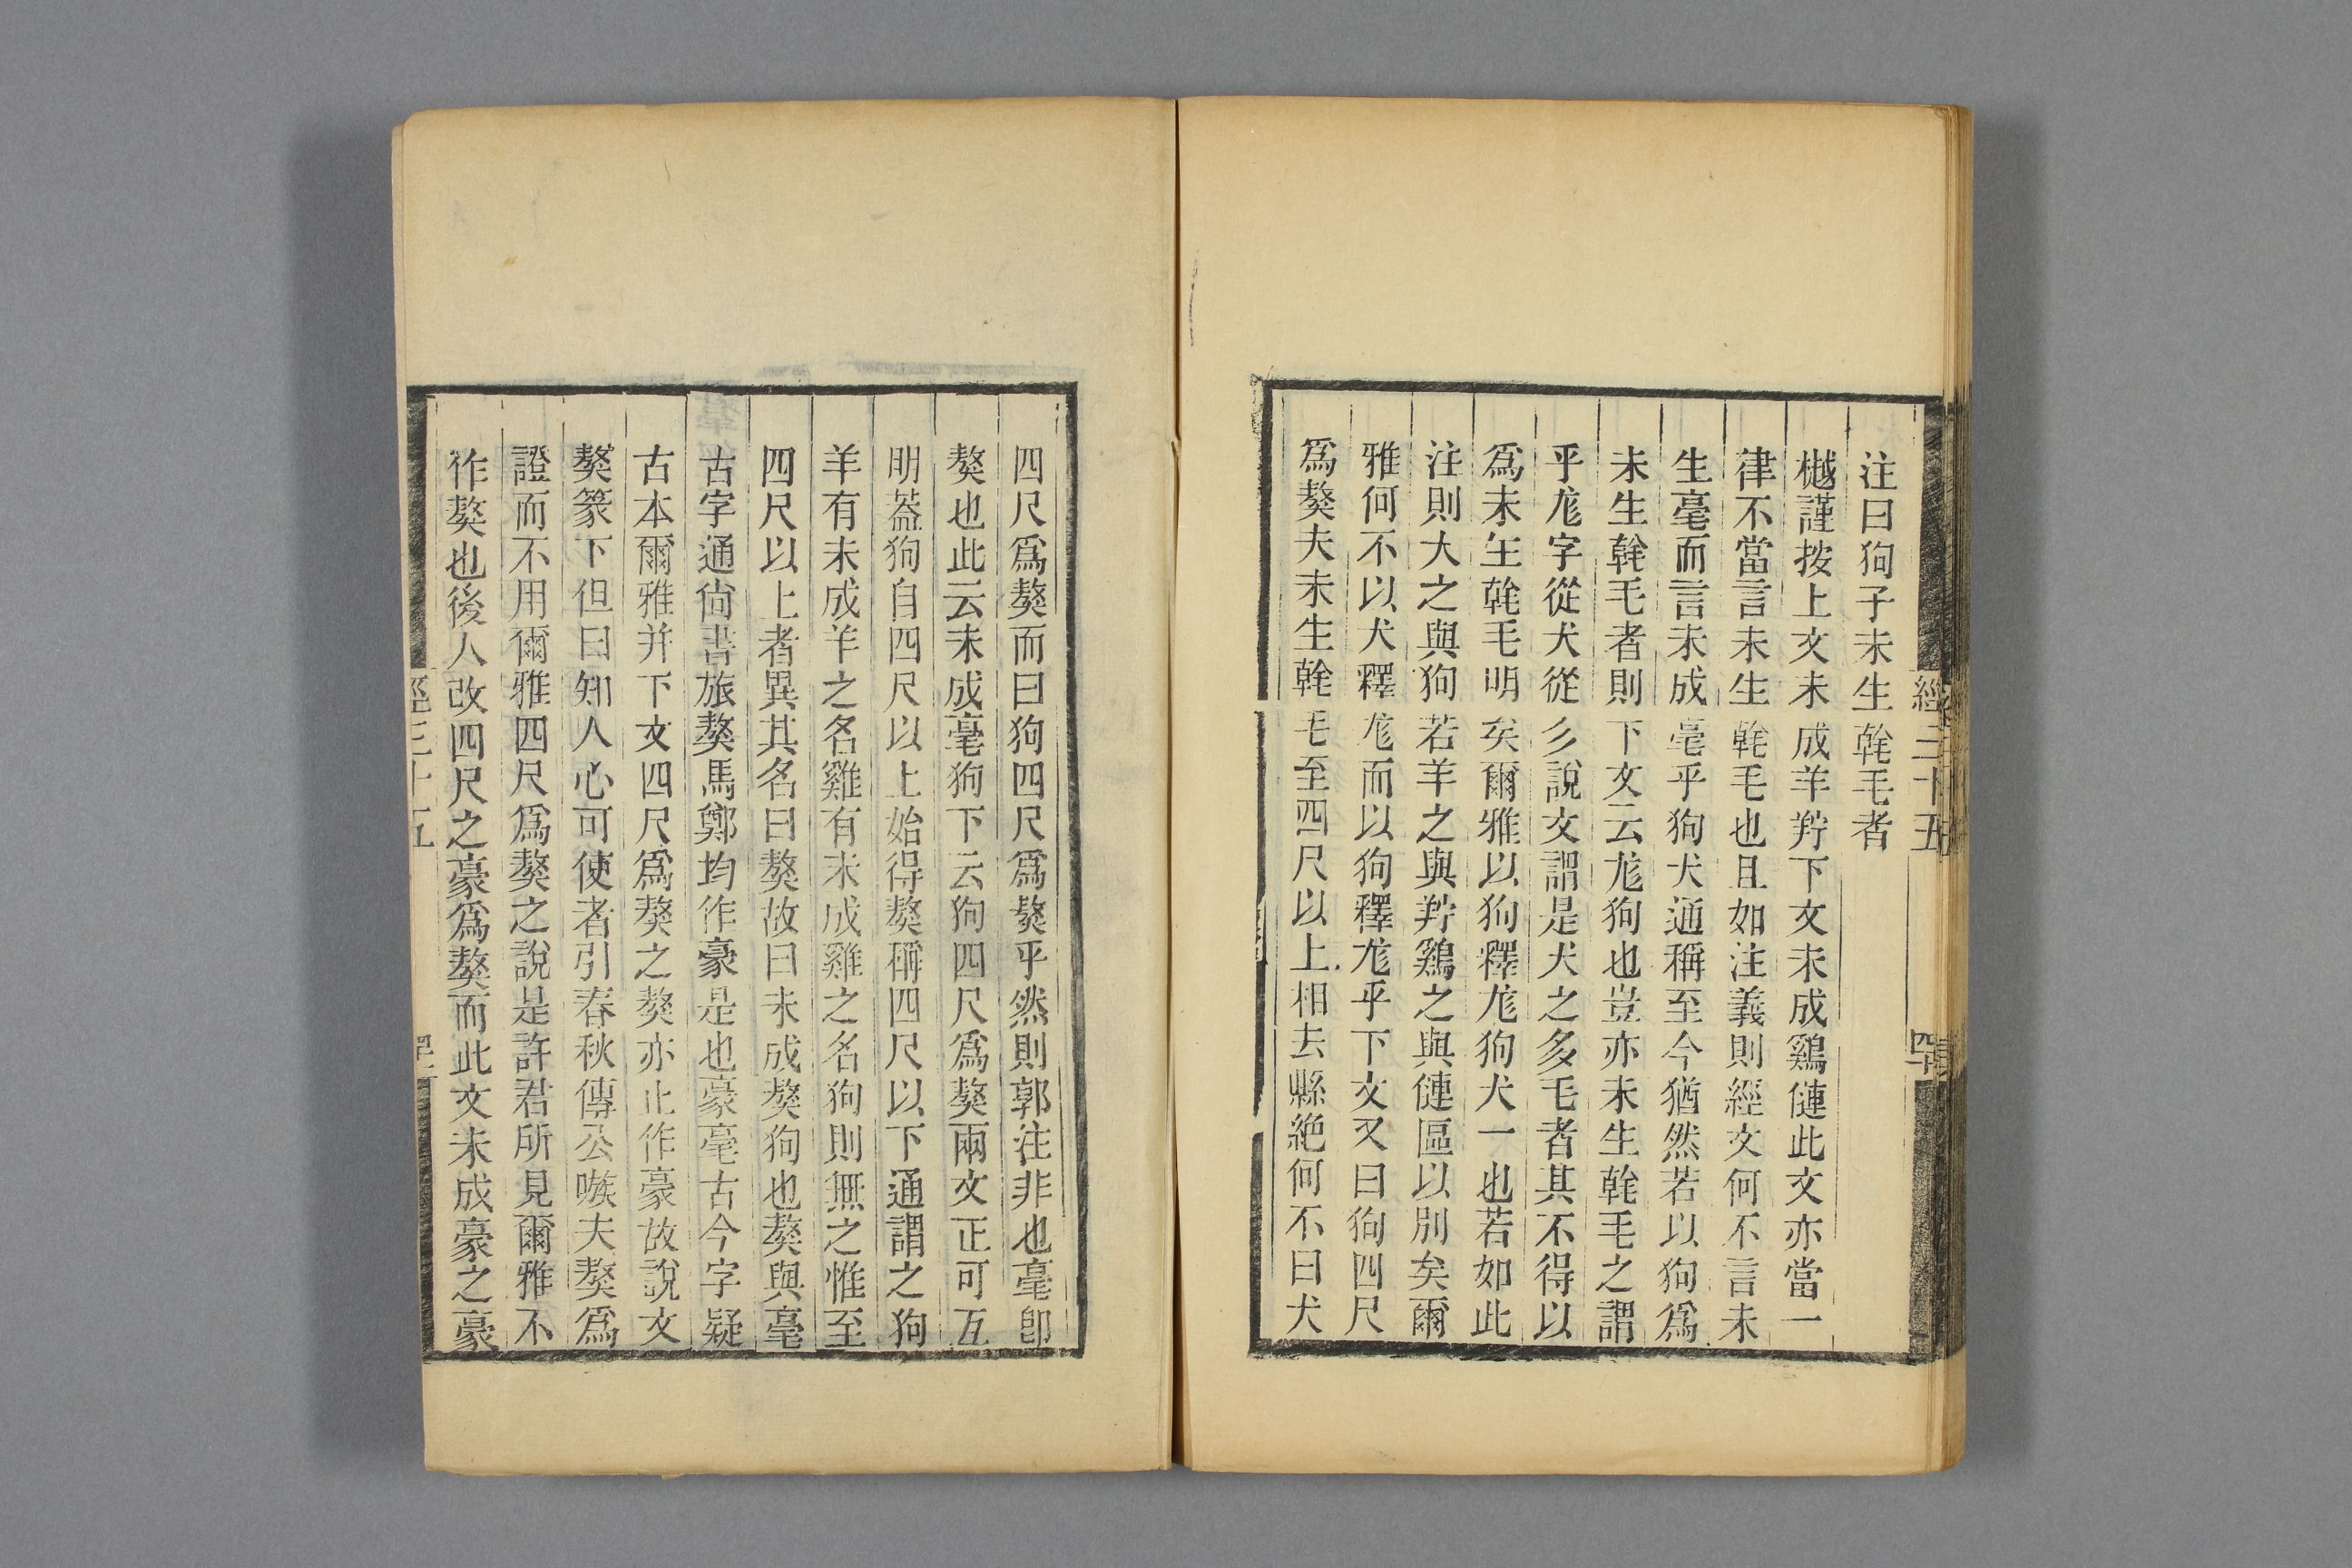 注曰狗子未生㲦毛者
樾謹按上文未成羊羜下文未成鷄僆此文亦當一
律不當言未生㲦毛也且如注義則經文何不言未
生毫而言未成毫乎狗犬通稱至今猶然若以狗爲
未生㲦毛者則下文云尨狗也豈亦未生㲦毛之謂
乎尨字從犬從彡說文謂是犬之多毛者其不得以
爲未生㲦毛明矣爾雅以狗釋尨狗犬一也若如此
注則犬之與狗若羊之與羜鷄之與僆區以別矣爾
雅何不以犬釋尨而以狗釋尨乎下文又曰狗四尺
爲獒夫未生㲦毛至四尺以上相去縣絶何不曰犬
經三十五
四尺爲獒而曰狗四尺爲獒乎然則郭注非也毫卽
獒也此云未成毫狗下云狗四尺爲獒兩文正可互
明葢狗自四尺以上始得獒稱四尺以下通謂之狗
羊有未成羊之名雞有未成雞之名狗則無之惟至
四尺以上者異其名曰獒故曰未成獒狗也獒與毫
古字通尙書旅獒馬鄭均作豪是也豪毫古今字疑
古本爾雅并下文四尺爲獒之獒亦止作豪故說文
獒篆下但曰知人心可使者引春秋傳公嗾夫獒爲
證而不用爾雅四尺爲獒之說是許君所見爾雅不
作獒也後人改四尺之豪爲獒而此文未成豪之豪
經三十五